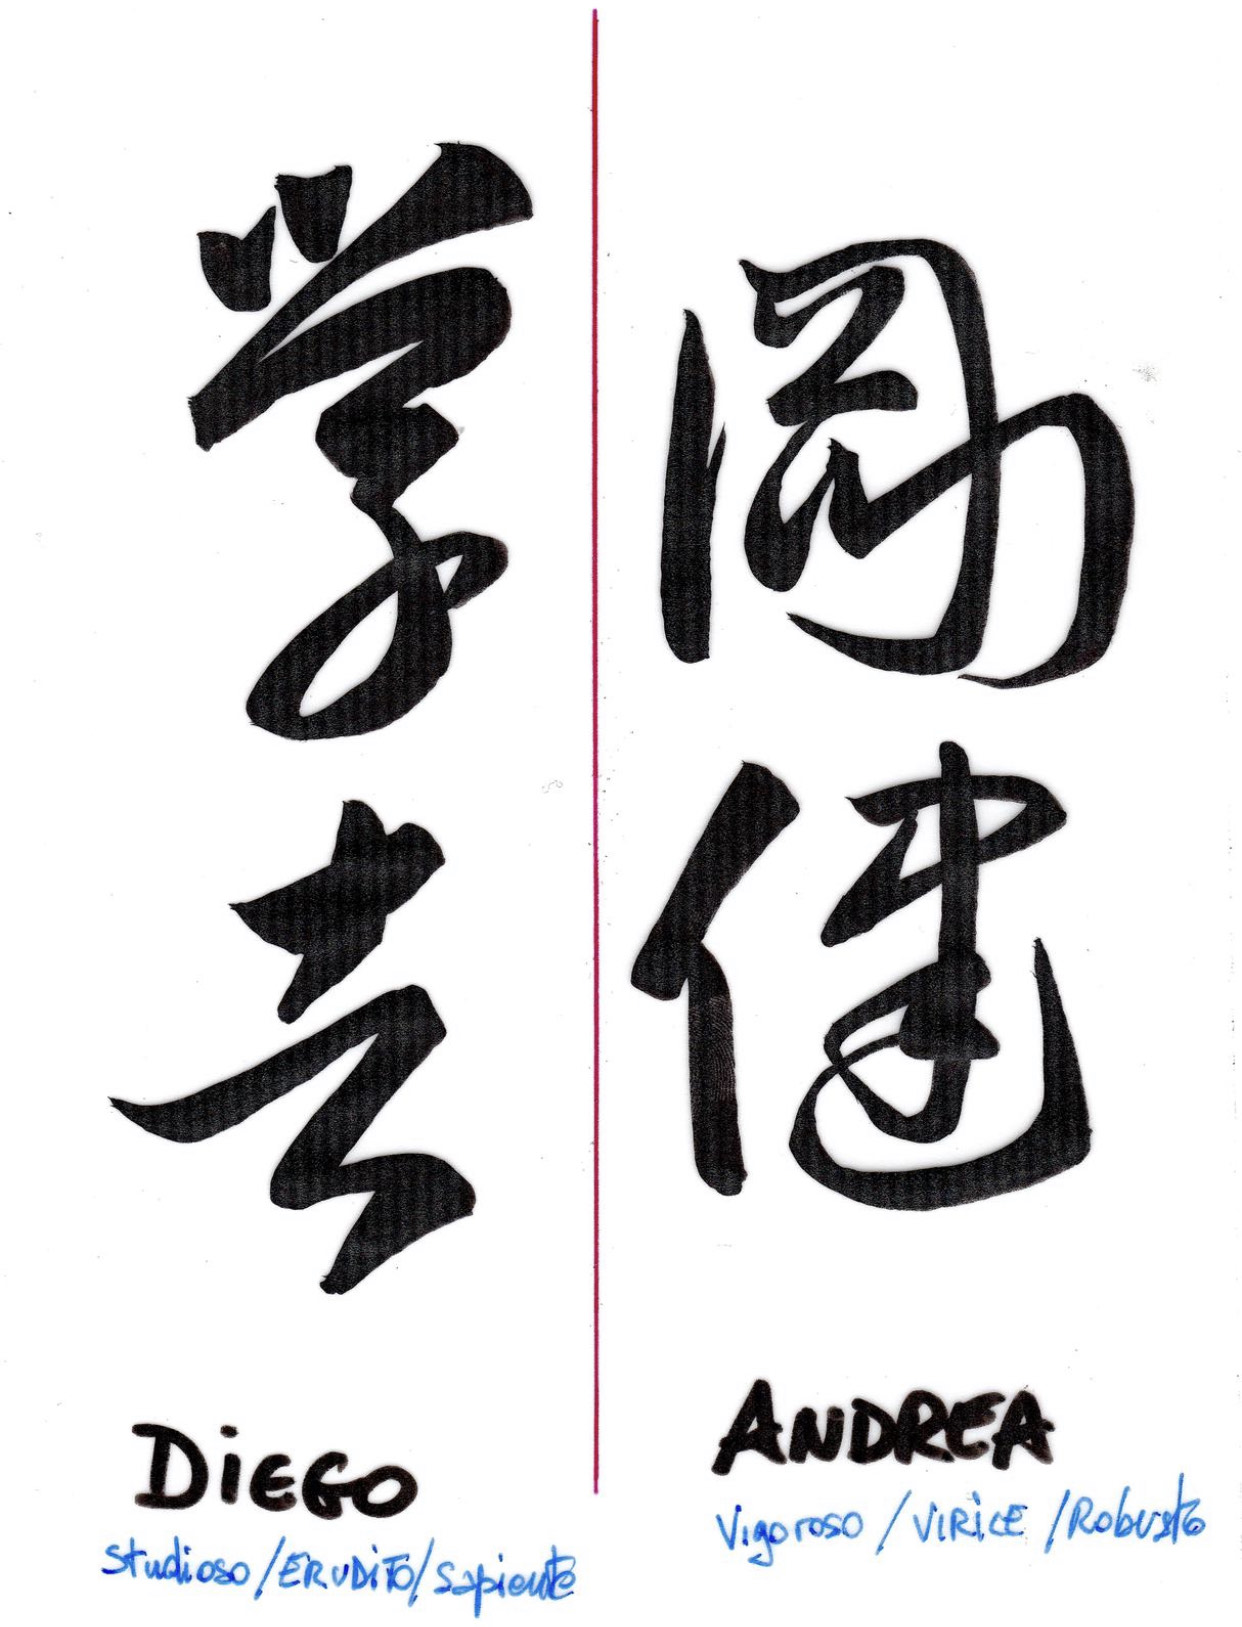 学者
DiEGO
Studioso / ERUDiTO / Sapiente
剛健
ANDREA
Vigoroso / VIRiLE / Robusto